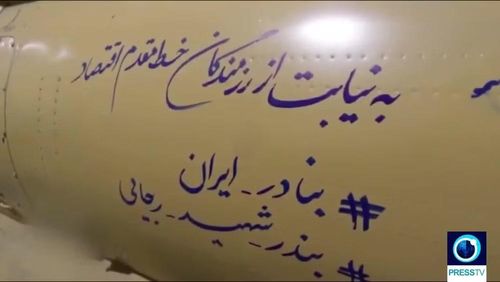 به نیابت از رزمندگان خط مقدم اقتصاد
#بنادر_ایران
#بندر_شهید_رجائی
PRESSTV